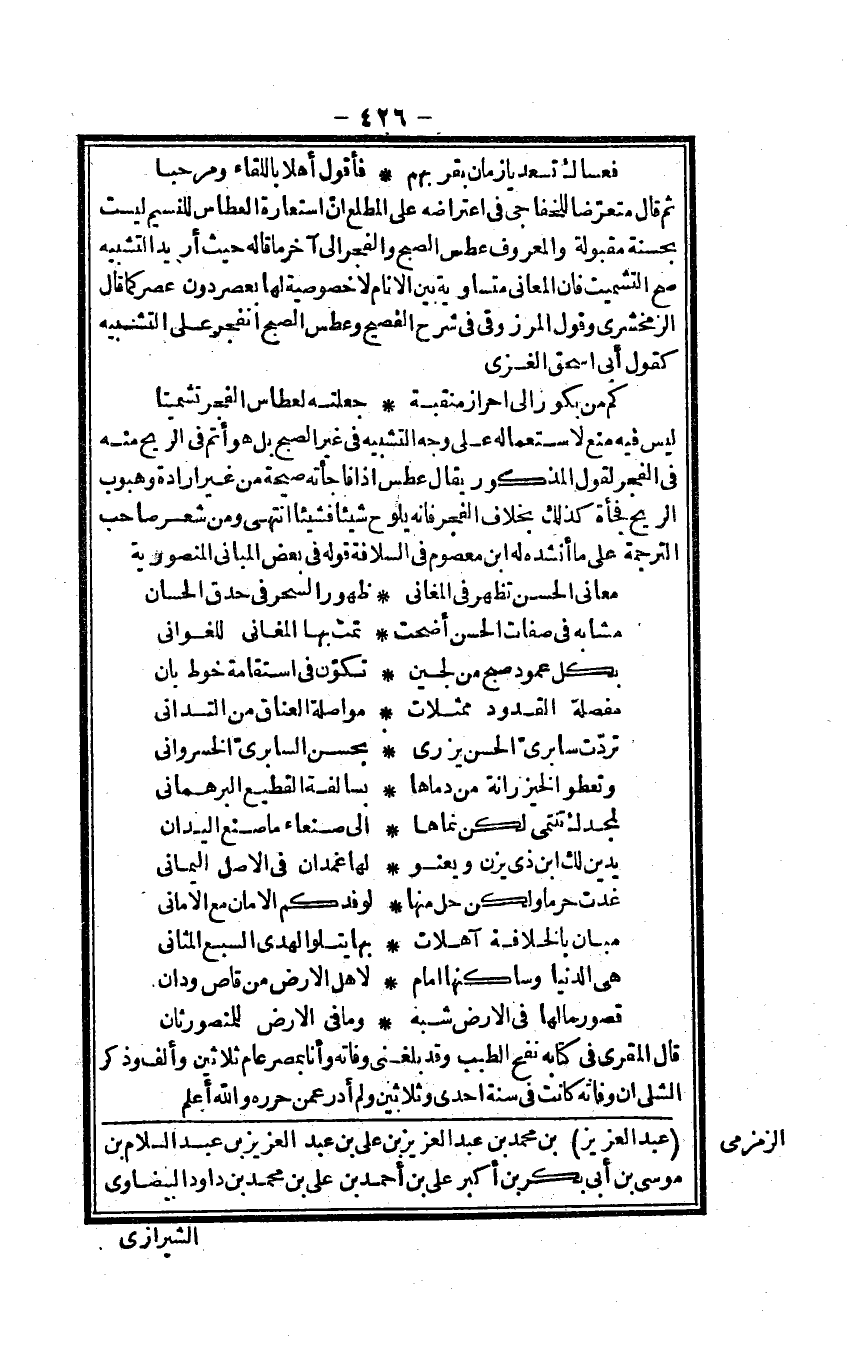 - ٤٢٦ -
فعساك تسعد يازمان بقربهم * فأقول أهلا باللقاء ومرحبا
ثم قال متعرّضا للخفاجى فى اعتراضه على المطلع انّ استعارة العطاس للنسيم ليست
بحسنة مقبولة والمعروف عطس الصبح والفجر الى آخر ماقاله حيث أريد التشبيه
صح التشميت فان المعانى متساوية بين الانام لاخصوصية لها بعصر دون عصر كماقال
الزمخشرى وقول المرزوقى فى شرح الفصيح وعطس الصبح انفجر على التشبيه
كقول أبى اسحق الغزى
كم من بكور الى احراز منقبة * جعلته لعطاس الفجر تشميتا
ليس فيه منع لاستعماله على وجه التشبيه فى غير الصبح بل هو أتم فى الريح منه
فى الفجر لقول المذكور يقال عطس اذا فاجأته صيحة من غير ارادة وهبوب
الريح فجأة كذلك بخلاف الفجر فانه يلوح شيئا فشيئا انتهى ومن شعر صاحب
الترجمة على ماأنشده له ابن معصوم فى السلافة قوله فى بعض المبانى المنصورية
معانى الحسن تظهر فى المغانى * ظهور السحر فى حدق الحسان
مشابه فى صفات الحسن أضحت * تمت بها المغانى للغوانى
بكل عمود صبح من لجين * تكوّن فى استقامة خوط بان
مفصلة القدود ممثلات * مواصلة العناق من التدانى
تردّت سابرىّ الحسن يزرى * بحسن السابرىّ الخسروانى
وتعطو الخيزرانة من دماها * بسالفة القطيع البرهمانى
لمجدك تنتمى لكن نماها * الى صنعاء ماصنع اليدان
يدين لك ابن ذى يزن ويعنو * لها غمدان فى الاصل اليمانى
غدت حرما ولكن حل منها * لوفدكم الامان مع الامانى
مبان بالخلافة آهلات * بها يتلوا الهدى السبع المثانى
هى الدنيا وساكنها امام * لاهل الارض من قاص ودان
قصور مالها فى الارض شبه * ومافى الارض للمنصور ثان
قال المقرى فى كتابه نفح الطيب وقد بلغنى وفاته وأنا بمصر عام ثلاثين وألف وذكر
الشلى ان وفاته كانت فى سنة احدى وثلاثين ولم أدر عمن حرره والله أعلم
(عبد العزيز) بن محمد بن عبد العزيز بن على بن عبد العزيز بن عبد السلام بن
الزمزمى
موسى بن أبى بكر بن أكبر على بن أحمد بن على بن محمد بن داود البيضاوى
الشيرازى